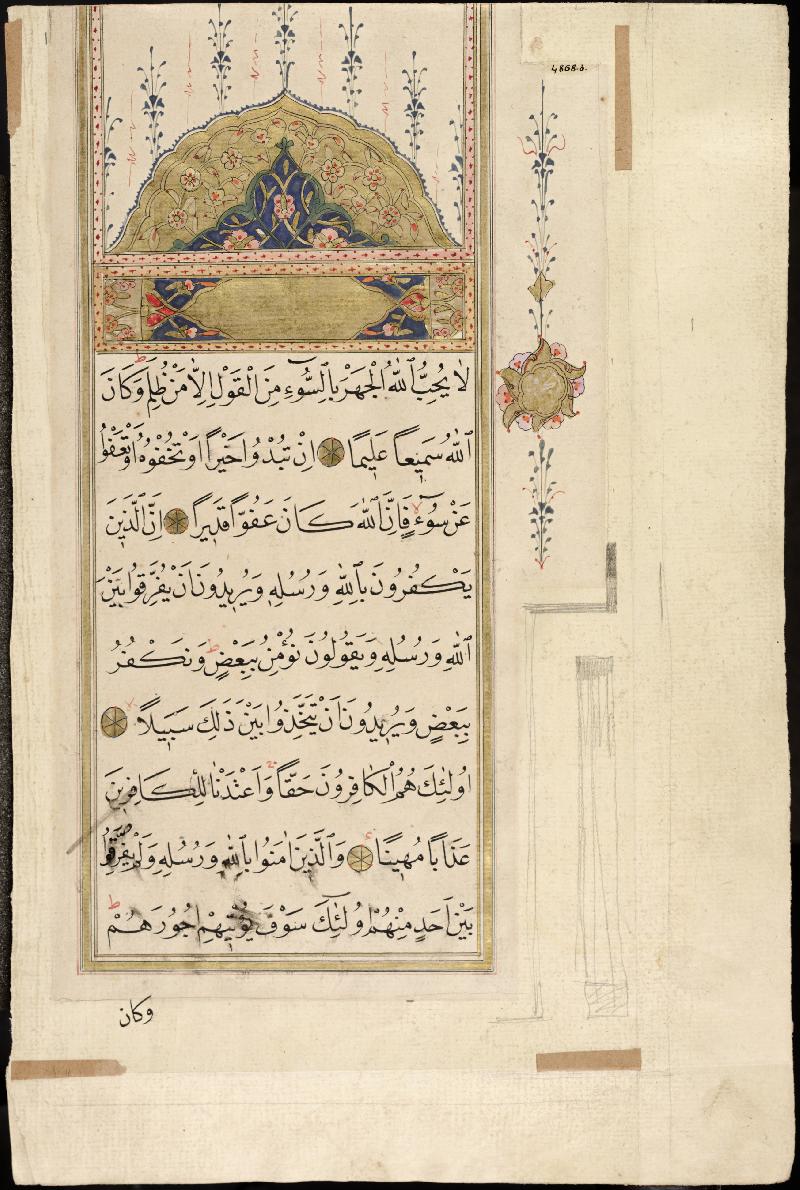 4868.b.
لَا يُحِبُّ ٱللّٰهُ الْجَهْرَ بِالسُّوٓءِ مِنَ الْقَوْلِ اِلَّا مَنْ ظُلِمَ ط وَكَانَ
ٱللّٰهُ سَمِيعاً عَلِيماً اِنْ تُبْدُوا خَيْراً اَوْ تُخْفُوهُ اَوْ تَعْفُوا
عَنْ سُوٓءٍ فَاِنَّ ٱللّٰهَ كَانَ عَفُوّاً قَدِيراً اِنَّ الَّذِينَ
يَكْفُرُونَ بِٱللّٰهِ وَرُسُلِهِ وَيُرِيدُونَ اَنْ يُفَرِّقُوا بَيْنَ
ٱللّٰهِ وَرُسُلِهِ وَيَقُولُونَ نُؤْمِنُ بِبَعْضٍ وَنَكْفُرُ
بِبَعْضٍ وَيُرِيدُونَ اَنْ يَتَّخِذُوا بَيْنَ ذٰلِكَ سَبِيلاً لا
اُولٰئِكَ هُمُ الْكَافِرُونَ حَقّاً وَاَعْتَدْنَا لِلْكَافِرِينَ
عَذَاباً مُهِيناً وَالَّذِينَ اٰمَنُوا بِٱللّٰهِ وَرُسُلِهِ وَلَمْ يُفَرِّقُوا
بَيْنَ اَحَدٍ مِنْهُمْ اُولٰئِكَ سَوْفَ يُؤْتِيهِمْ اُجُورَهُمْ ط
وكان